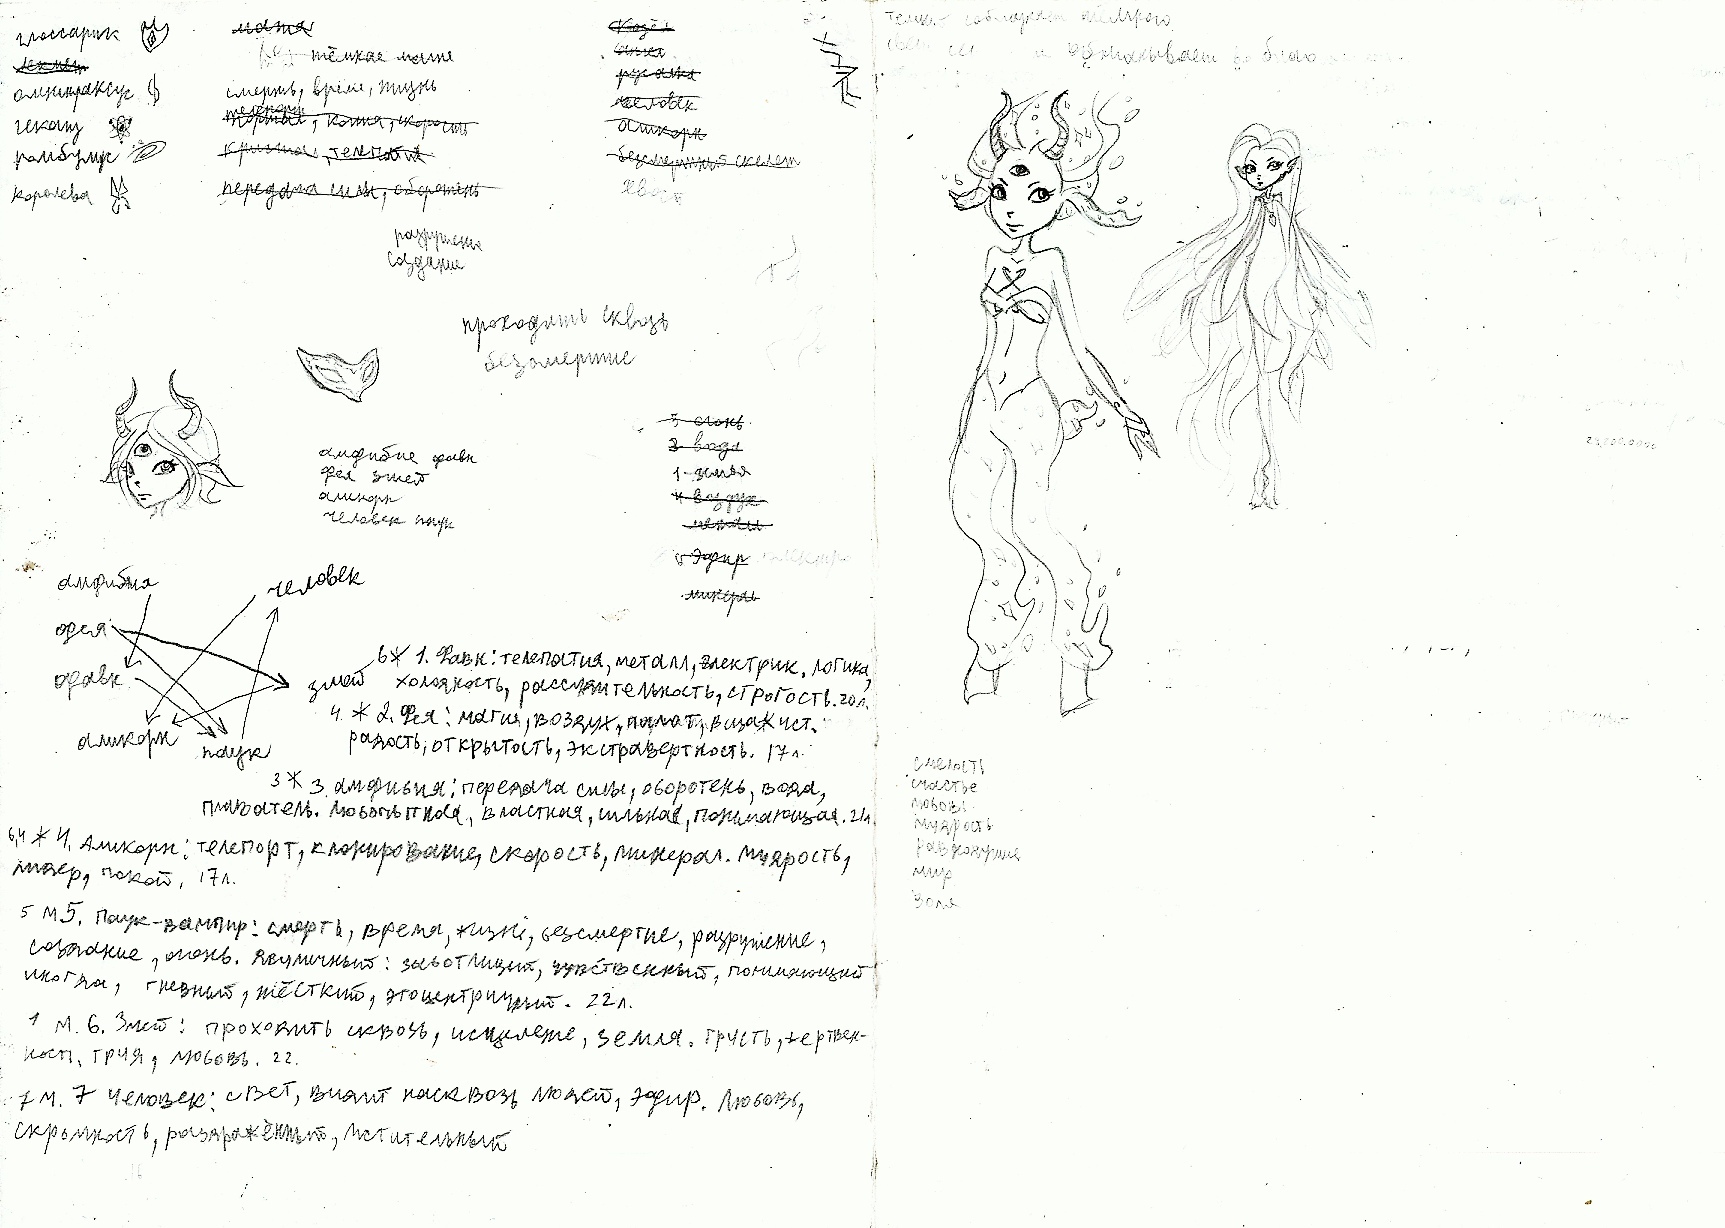 глоссарик
омнитраксус
гекапу
ромбулус
королева
магия
тёмная магия
смерть, время, жизнь
телепорт
портал, копия, скорость
кристал, телепатия
передача силы, оборотень
разрушение
создание
проходить сквозь
безсмертие
козёл
русалка
человек
аликорн
безсмертный скелет
амфибие фавн
фея змей
аликорн
человек паук
3 огонь
2 вода
1-земля
4 воздух
металл
5 Эфир
минерал
амфибия
человек
фея
фавн
змей
аликорн
паук
6ж 1. Фавн: телепатия, металл, электрик, логика,
холодность, рассудительность, строгость. 20л.
4. ж 2. Фея: магия, воздух,
радость, открытость, экстравертность. 17л.
3 ж 3. амфибия: передача силы, оборотень, вода,
плаватель. Любопытная, властная, сильная, понимающая. 21л.
6,4 ж 4. Аликорн: телепорт, клонирование, скорость, минерал. Мудрость,
лидер, покой. 17л.
5 м5. Паук-вампир: смерть, время, жизнь, безсмертие, разрушение,
создание, огонь. Двуличный: заботливый, чувственный, понимающий
иногда, гневный, жёсткий, эгоцентричный. 22л.
1 м. 6. Змей: проходить сквозь, исцеление, земля. Грусть, жертвен-
ность, любовь. 22.
7 м. 7 Человек: свет, видит насквозь людей, эфир. Любовь,
скромность, раздражённый, мстительный
смелость
счастье
любовь
мудрость
равнодушие
мир
воля